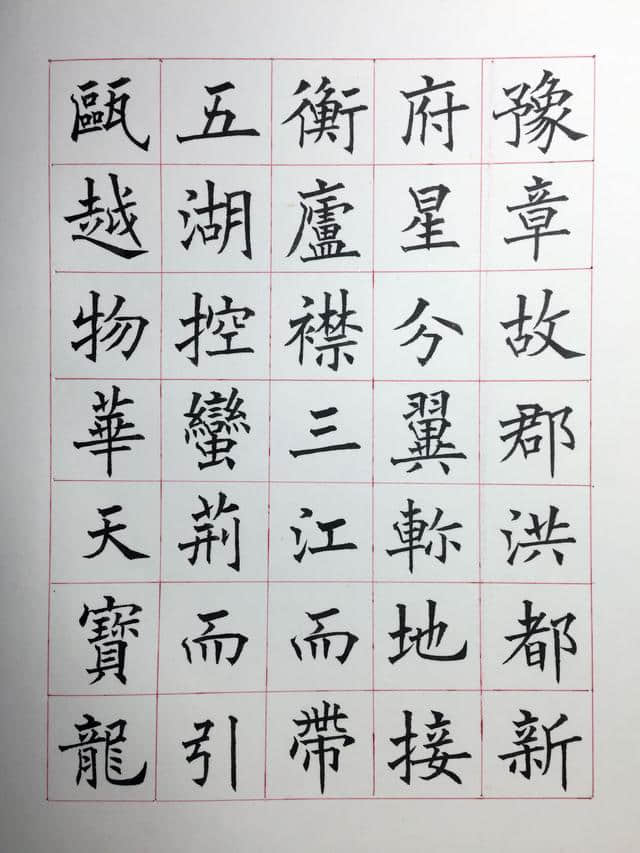 豫章故郡洪都新
府星分翼軫地接
衡廬襟三江而帶
五湖控蠻荆而引
甌越物華天寶龍